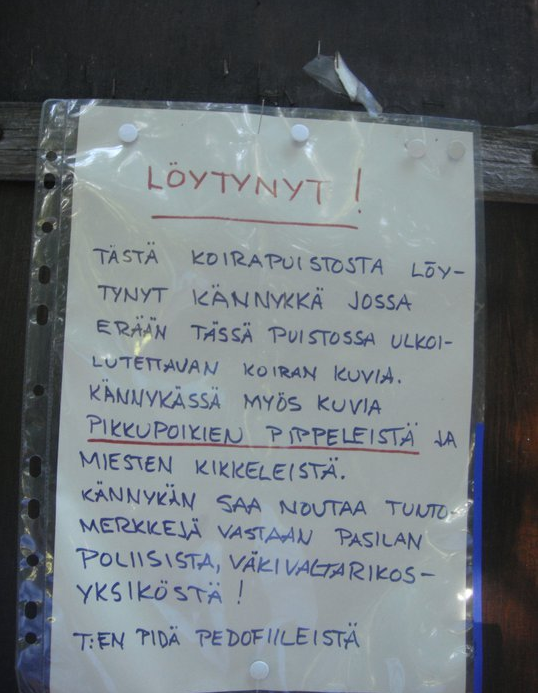 LÖYTYNYT!
TÄSTÄ KOIRAPUISTOSTA LÖY-
TYNYT KÄNNYKKÄ JOSSA
ERÄÄN TÄSSÄ PUISTOSSA ULKOI-
LUTETTAVAN KOIRAN KUVIA.
KÄNNYKÄSSÄ MYÖS KUVIA
PIKKUPOIKIEN PIPPELEISTÄ JA
MIESTEN KIKKELEISTÄ.
KÄNNYKÄN SAA NOUTAA TUNTO-
MERKKEJÄ VASTAAN PASILAN
POLIISISTA, VÄKIVALTARIKOS-
YKSIKÖSTÄ!
T:EN PIDÄ PEDOFIILEISTÄ